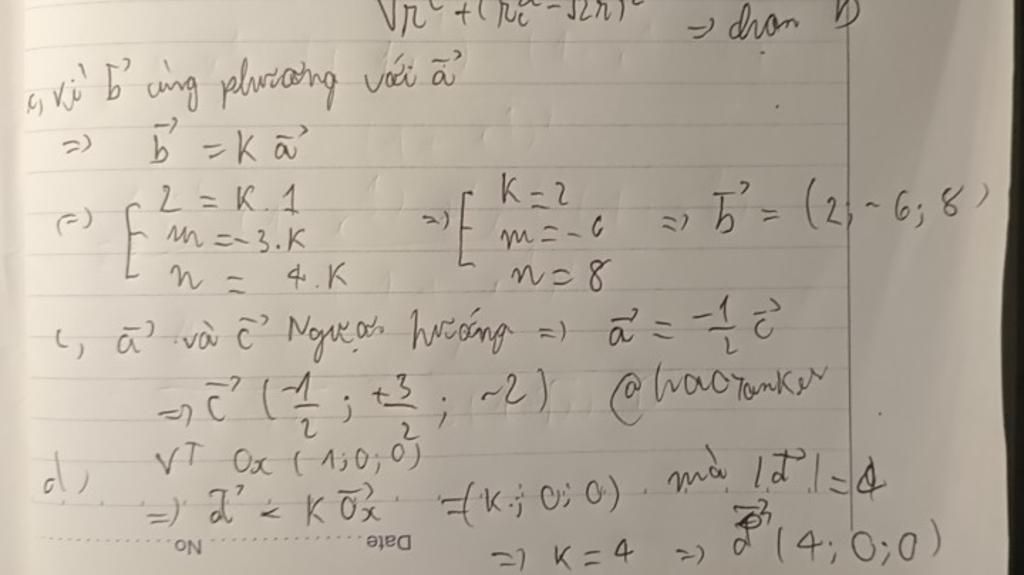 => chọn B
c, vì b⃗ cùng phương với a⃗
=> b⃗ = K a⃗
=> [ 2 = K.1 => [ K = 2 => b⃗ = (2; -6; 8)
m = -3.K m = -6
n = 4.K n = 8
c, a⃗ và c⃗ Ngược hướng => a⃗ = -1/2 c⃗
=> c⃗ (-1/2; +3/2; -2) @haoranker
d, VT Ox (1; 0; 0)
=> d⃗ = K Ox⃗ = (K; 0; 0) mà |d⃗| = 4
=> K = 4 => d⃗ (4; 0; 0)
Date No